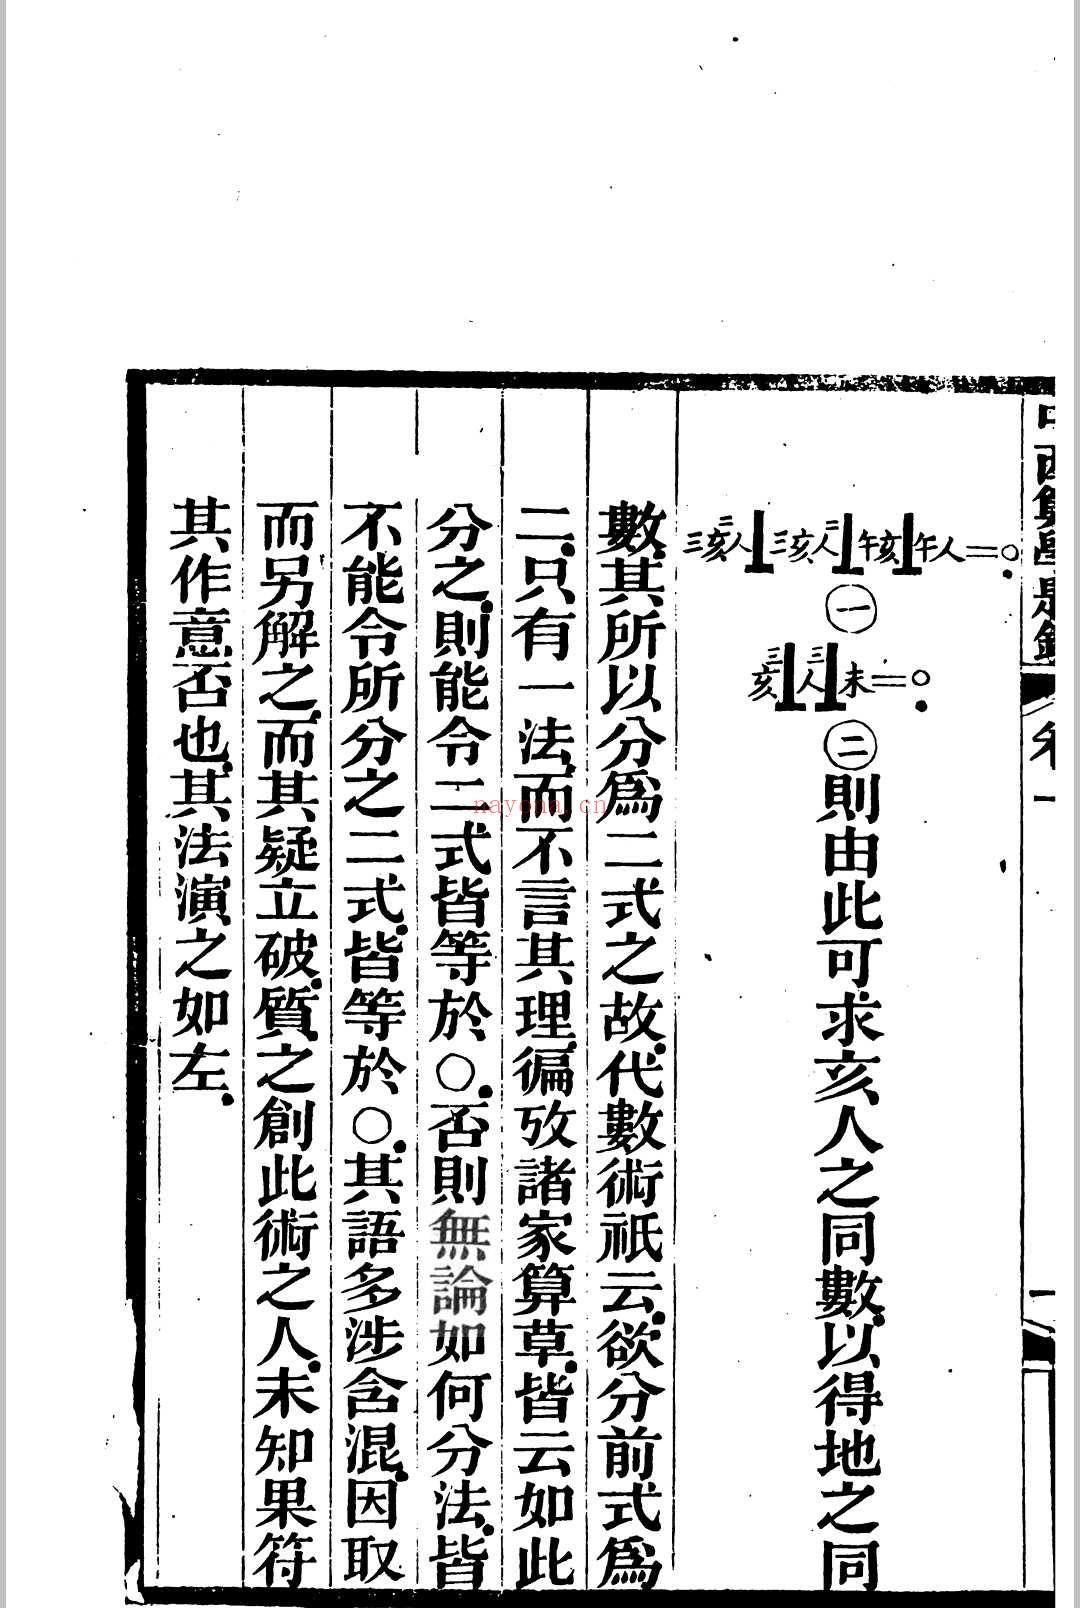 三亥三人⊥三亥人三⊥午亥⊥午人＝○
㊀
三亥⊥三人⊥未＝○
㊁則由此可求亥人之同數以得地之同
數其所以分爲二式之故代數術祇云欲分前式爲
二只有一法而不言其理徧攷諸家算草皆云如此
分之則能令二式皆等於○否則無論如何分法皆
不能令所分之二式皆等於○其語多涉含混因取
而另解之而其疑立破質之創此術之人未知果符
其作意否也其法演之如左
nayona.cn